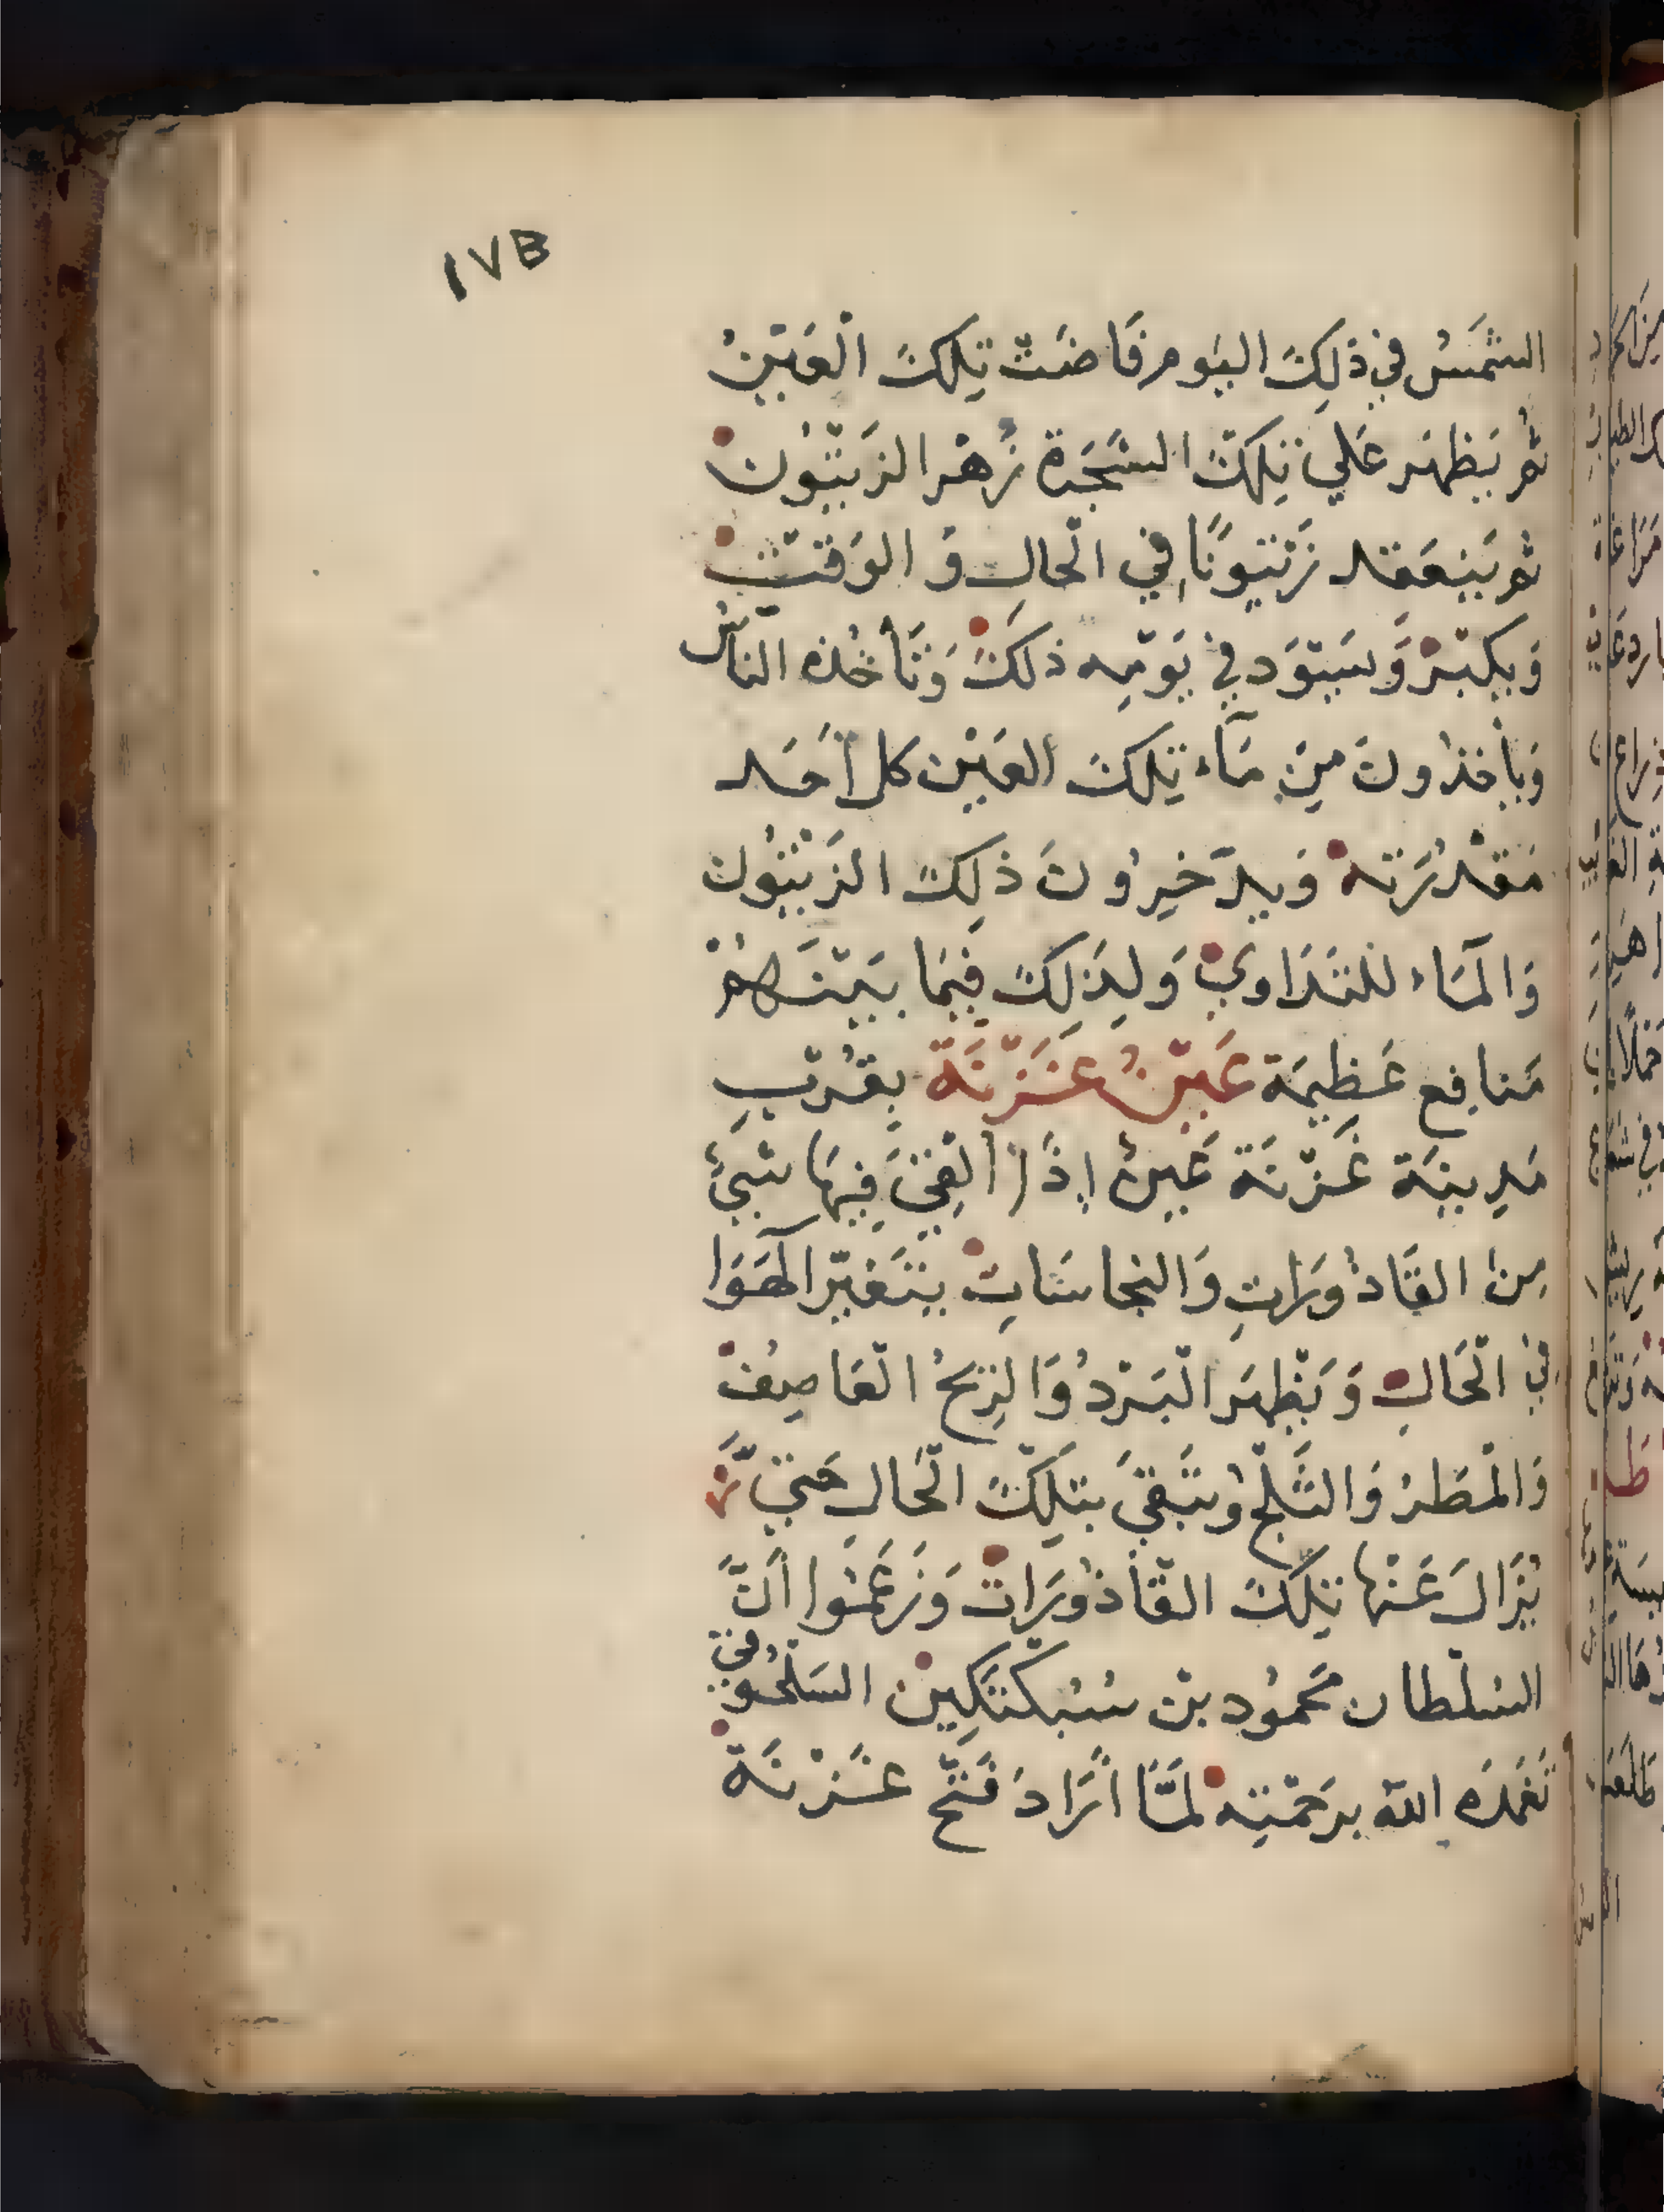 ١٧٣
الشَّمْسُ فِي ذٰلِكَ اليَوم فَاضَتْ تِلكَ الْعَيْنُ
ثُم يَظهَر عَلي تِلكَ الشَّجَرَة زَهْر الزَيْتُونْ
ثُم يَنعَقد زَيْتُونًا فِي الْحَالِ وَ الوَقتْ
وَيكبَرْ وَيَسْوَد فِي يَوْمِه ذلكَ وَتَأخُذه النَّاسُ
وَيأخذُونَ مِنْ مَآء تِلكَ العَيْن كل أحَد
مَقْدُرَته وَيدَّخِرُونَ ذلِكَ الزَيْتُون
وَالمَآء للتَدَاوي وَلِذَلِكَ فِيمَا بَيْنَهُمْ
مَنافِع عَظِيمَة عَيْنُ غَزْنَة بِقُرْبِ
مَدِينَة غَزْنَة عَينٌ إِذَا أُلقِيَ فِيهَا شَيْئٌ
مِنَ القَاذُورَاتِ وَالنجاسَاتِ يَتَغَيَّر الْهَوَا
فِي الْحَالِ وَيَظْهَر الْبَرْدُ وَالرِّيحُ الْعَاصِفْ
وَالْمَطرُ وَالثَّلْجُ وَيَبْقَى بتِلكَ الْحَال حَتي
يُزَالَ عَنْهَا تِلكَ القَاذُورَاتْ وَزَعَمُوا أَنَّ
السُلْطان محمُود بنْ سُبُكتكِينْ السَلجُوقي
تَغَمَّدَه اللّٰه برَحْمَتِه لَمَّا أَرَادَ فَتْح غَزْنَة